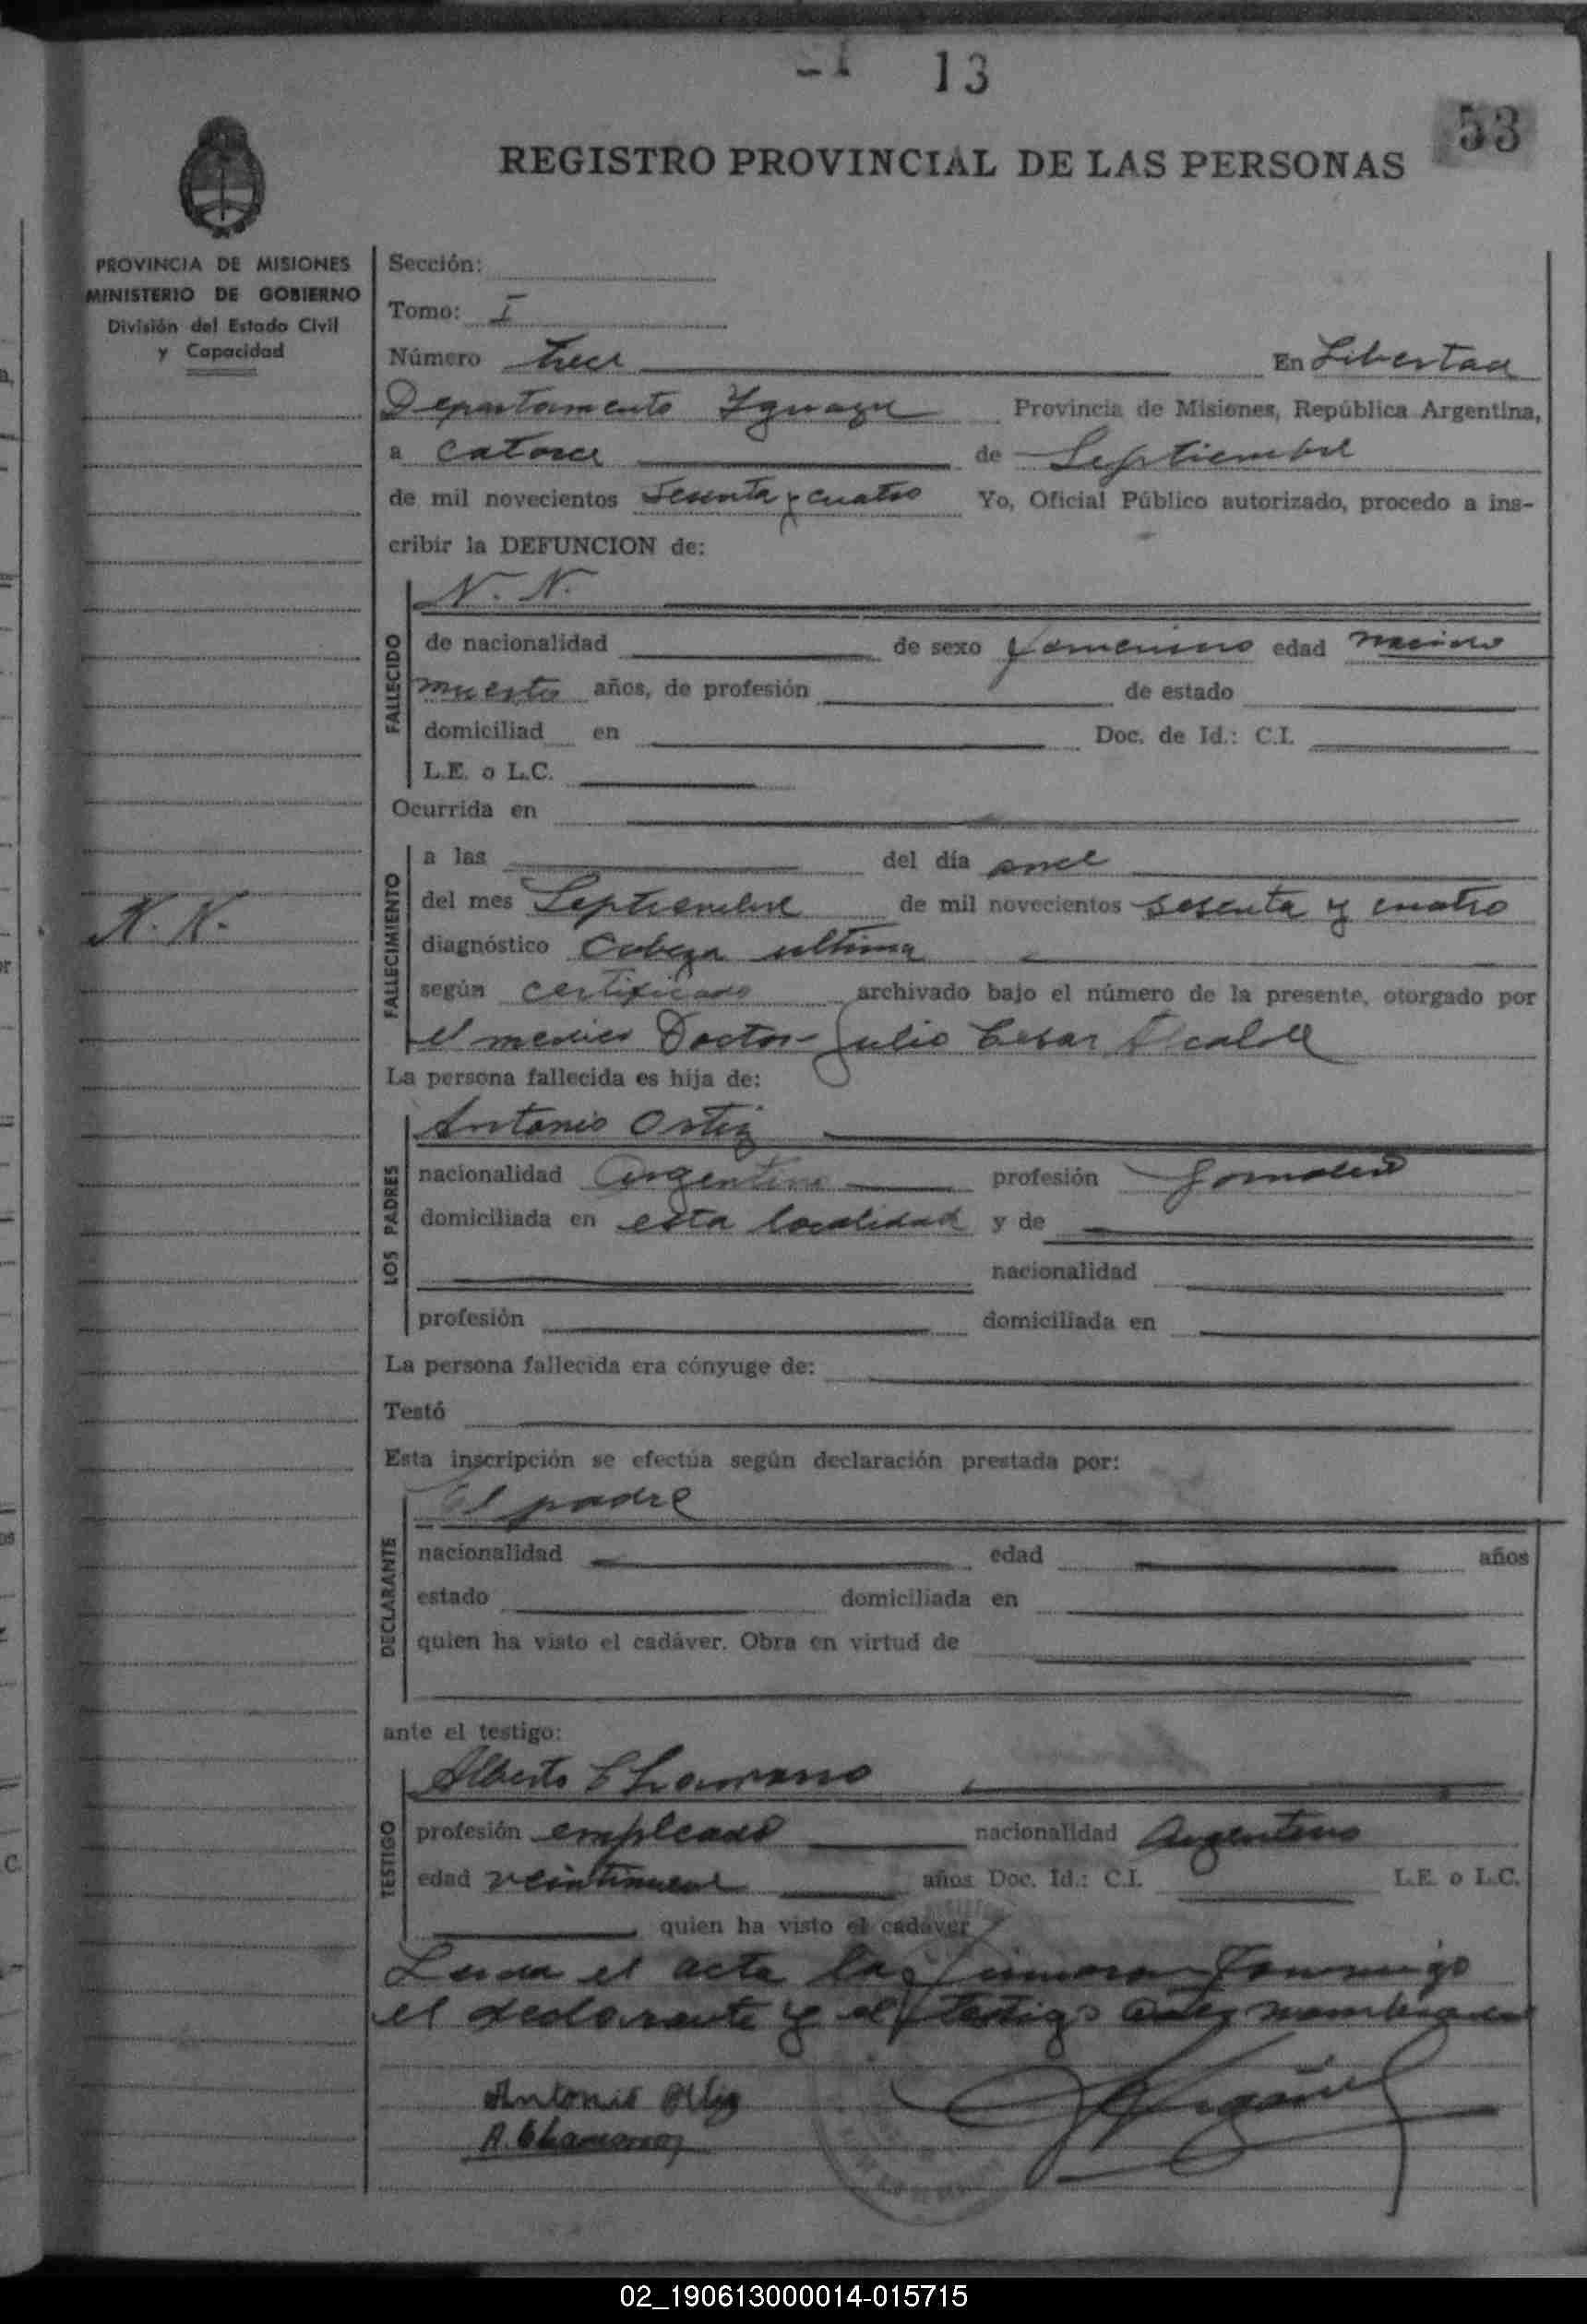 13
53
REGISTRO PROVINCIAL DE LAS PERSONAS
PROVINCIA DE MISIONES
MINISTERIO DE GOBIERNO
División del Estado Civil
y Capacidad
Sección:
Tomo: I
Número trece En Libertad
Departamento Iguazu Provincia de Misiones, República Argentina,
a catorce de Septiembre
de mil novecientos sesenta y cuatro Yo, Oficial Público autorizado, procedo a ins-
cribir la DEFUNCION de:
N. N.
FALLECIDO
de nacionalidad de sexo femenino edad nacido
muerto años, de profesión de estado
domiciliad en Doc. de Id.: C.I.
L.E. o L.C.
Ocurrida en
N. N.
FALLECIMIENTO
a las del día once
del mes Septiembre de mil novecientos sesenta y cuatro
diagnóstico Cabeza ultima
según certificado archivado bajo el número de la presente, otorgado por
el medico Doctor Julio Cesar Alcalde
La persona fallecida es hija de:
LOS PADRES
Antonio Ortiz
nacionalidad argentino profesión Jornalero
domiciliada en esta localidad y de
nacionalidad
profesión domiciliada en
La persona fallecida era cónyuge de:
Testó
Esta inscripción se efectúa según declaración prestada por:
DECLARANTE
El padre
nacionalidad edad años
estado domiciliada en
quien ha visto el cadáver. Obra en virtud de
ante el testigo:
TESTIGO
Alberto
profesión empleado nacionalidad Argentino
edad veintinueve años Doc. Id.: C.I. L.E. o L.C.
quien ha visto el cadáver
Leida el acta la conmigo
el declarante y el testigo antes
Antonio Ortiz
02_190613000014-015715